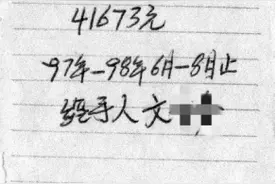 41673元
97年-98年6月-8月止
经手人文